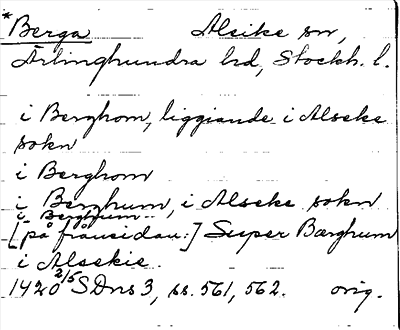 *Berga Alsike sn,
Ärlinghundra hd, Stockh. l.
i Berghom, liggiande i Alseke
sokn
i Berghom
i Berghum, i Alseke sokn
i Berghum
[på frånsidan:] Super Bærghum
i Alsekie
1420 2/5 SDns 3, ss. 561, 562. orig.